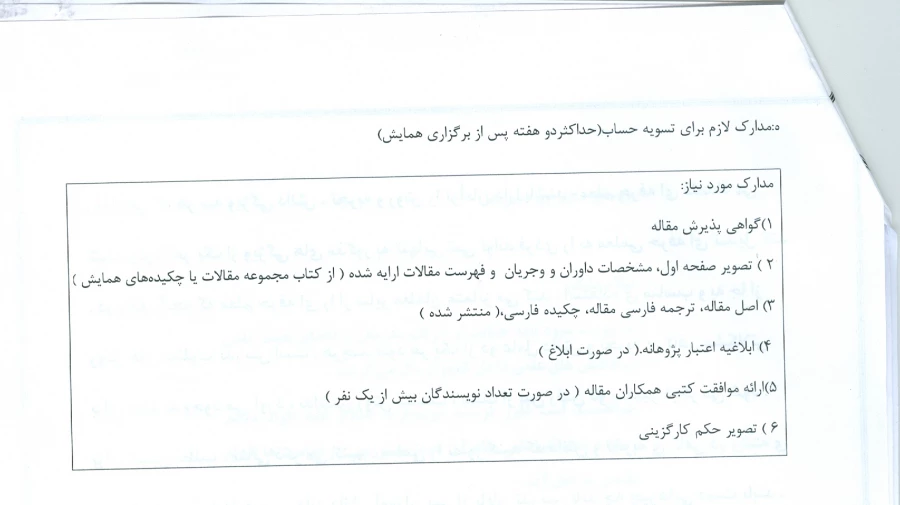 ه:مدارک لازم برای تسویه حساب(حداکثردو هفته پس از برگزاری همایش)
مدارک مورد نیاز:
۱)گواهی پذیرش مقاله
۲ ) تصویر صفحه اول، مشخصات داوران و وجریان و فهرست مقالات ارایه شده ( از کتاب مجموعه مقالات یا چکیده‌های همایش )
۳) اصل مقاله، ترجمه فارسی مقاله، چکیده فارسی،( منتشر شده )
۴) ابلاغیه اعتبار پژوهانه.( در صورت ابلاغ )
۵)ارائه موافقت کتبی همکاران مقاله ( در صورت تعداد نویسندگان بیش از یک نفر )
۶ ) تصویر حکم کارگزینی